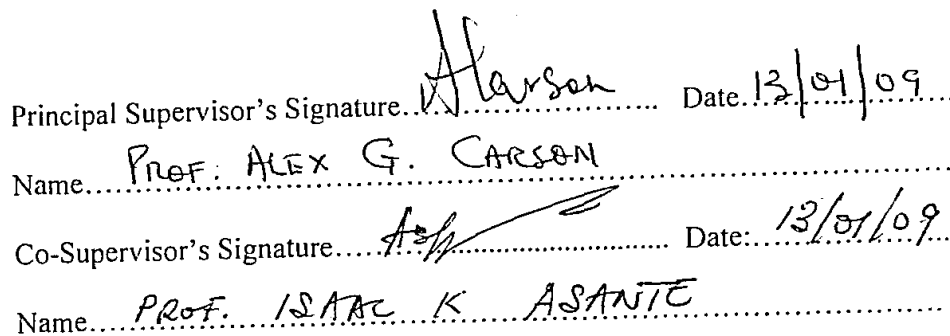 Principal Supervisor's Signature.. ACarson ........ Date..13/01/09
Name.... PROF. ALEX G. CARSON
Co-Supervisor's Signature..... ........ Date:...13/01/09
Name.... PROF. ISAAC K ASANTE